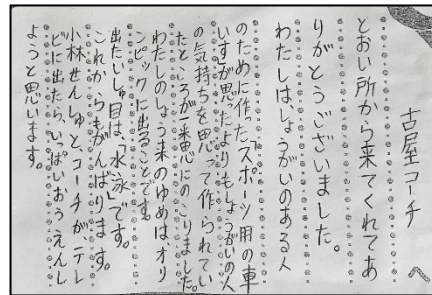 古屋コーチへ
とおい所から来てくれてあ
りがとうございました。
わたしは、しょうがいのある人
のために作ったスポーツ用の車
いすが思ったよりもしょうがいの人
の気持ちを思って作られてい
たところが一番心にのこりました。
わたしのしょう来のゆめはオリ
ンピックに出ることです。
出たいしゅ目は、「水泳」です。
これからもがんばります。
小林せんしゅと、コーチがテレ
ビに出たら、いっぱいおうえんし
ようと思います。